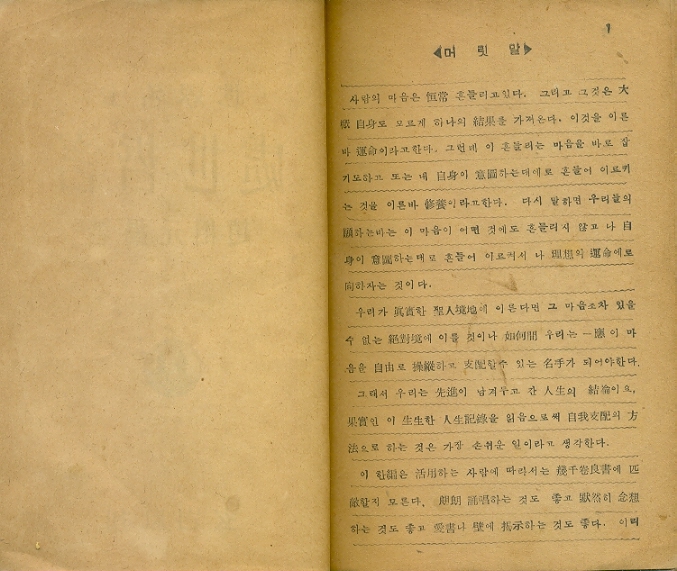 1
◀머 릿 말▶
사람의 마음은 恒常 흔들리고있다. 그리고 그것은 大
眾 自身도 모르게 하나의 結果를 가져온다. 이것을 이른
바 運命이라고한다. 그런데 이 흔들리는 마음을 바로 잡
기도하고 또는 네 自身이 意圖하는데에로 흔들어 이르키
는 것을 이른바 修養이라고한다. 다시 말하면 우리들의
願하는바는 이 마음이 어떤 것에도 흔들리지 않고 나 自
身이 意圖하는대로 흔들어 이르켜서 나 理想의 運命에로
向하자는 것이다.
우리가 眞實한 聖人境地에 이른다면 그 마음조차 있을
수 없는 絕對境에 이를 것이나 如何間 우리는 一應 이 마
음을 自由로 操縱하고 支配할수 있는 名手가 되어야한다.
그래서 우리는 先進이 남겨두고 간 人生의 結論이요,
果實인 이 生生한 人生記錄을 읽음으로써 自我支配의 方
法으로 하는 것은 가장 손쉬운 일이라고 생각한다.
이 한 은 活用하는 사람에 따라서는 幾千卷良書에 匹
敵할지 모른다. 誦唱하는 것도 좋고 默然히 念想
하는 것도 좋고 愛書나 壁에 揭示하는 것도 좋다. 이러